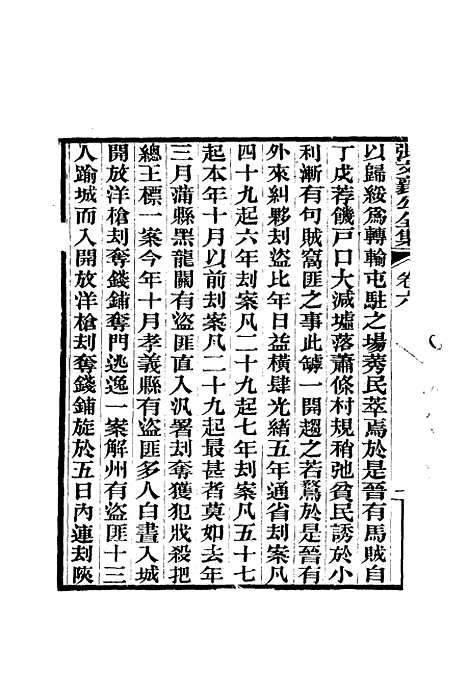 張文襄公全集 卷六 二
以歸綏為轉輸屯駐之場莠民萃焉於是晉有馬賊自
丁戊荐饑戸口大減墟落蕭條村規稍弛貧民誘於小
利漸有句賊窩匪之事此罅一開趨之若騖於是晉有
外來糾夥刦盜比年日益橫肆光緒五年通省刦案凡
四十九起六年刦案凡二十九起七年刦案凡五十七
起本年十月以前刦案凡二十九起最甚者莫如去年
三月蒲縣黑龍關有盜匪直入汛署刦奪獲犯戕殺把
總王標一案今年十月孝義縣有盜匪多人白晝入城
開放洋槍刦奪錢鋪奪門逃逸一案解州有盜匪十三
人踰城而入開放洋槍刦奪錢鋪旋於五日內連刦陝